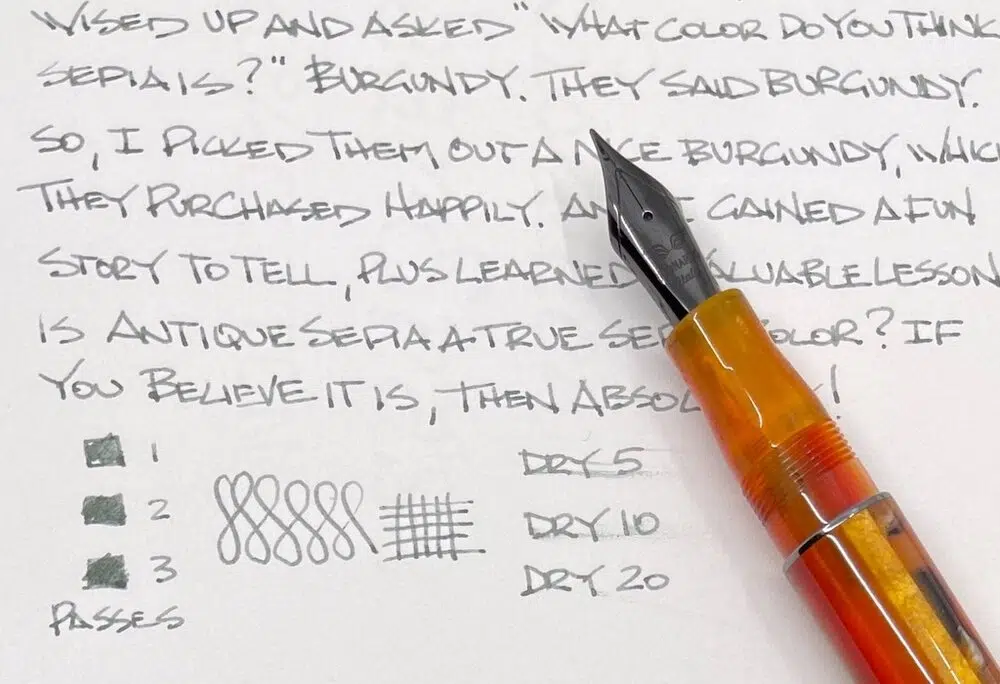 WISED UP AND ASKED "WHAT COLOR DO YOU THINK
SEPIA IS?" BURGUNDY. THEY SAID BURGUNDY.
SO, I PICKED THEM OUT A NICE BURGUNDY, WHIC
THEY PURCHASED HAPPILY. AN I GAINED A FUN
STORY TO TELL, PLUS LEARNED VALUABLE LESSON
IS ANTIQUE SEPIA A TRUE SEP COLOR? IF
YOU BELIEVE IT IS, THEN ABSOL !
1
2
3
PASSES
DRY 5
DRY 10
DRY 20